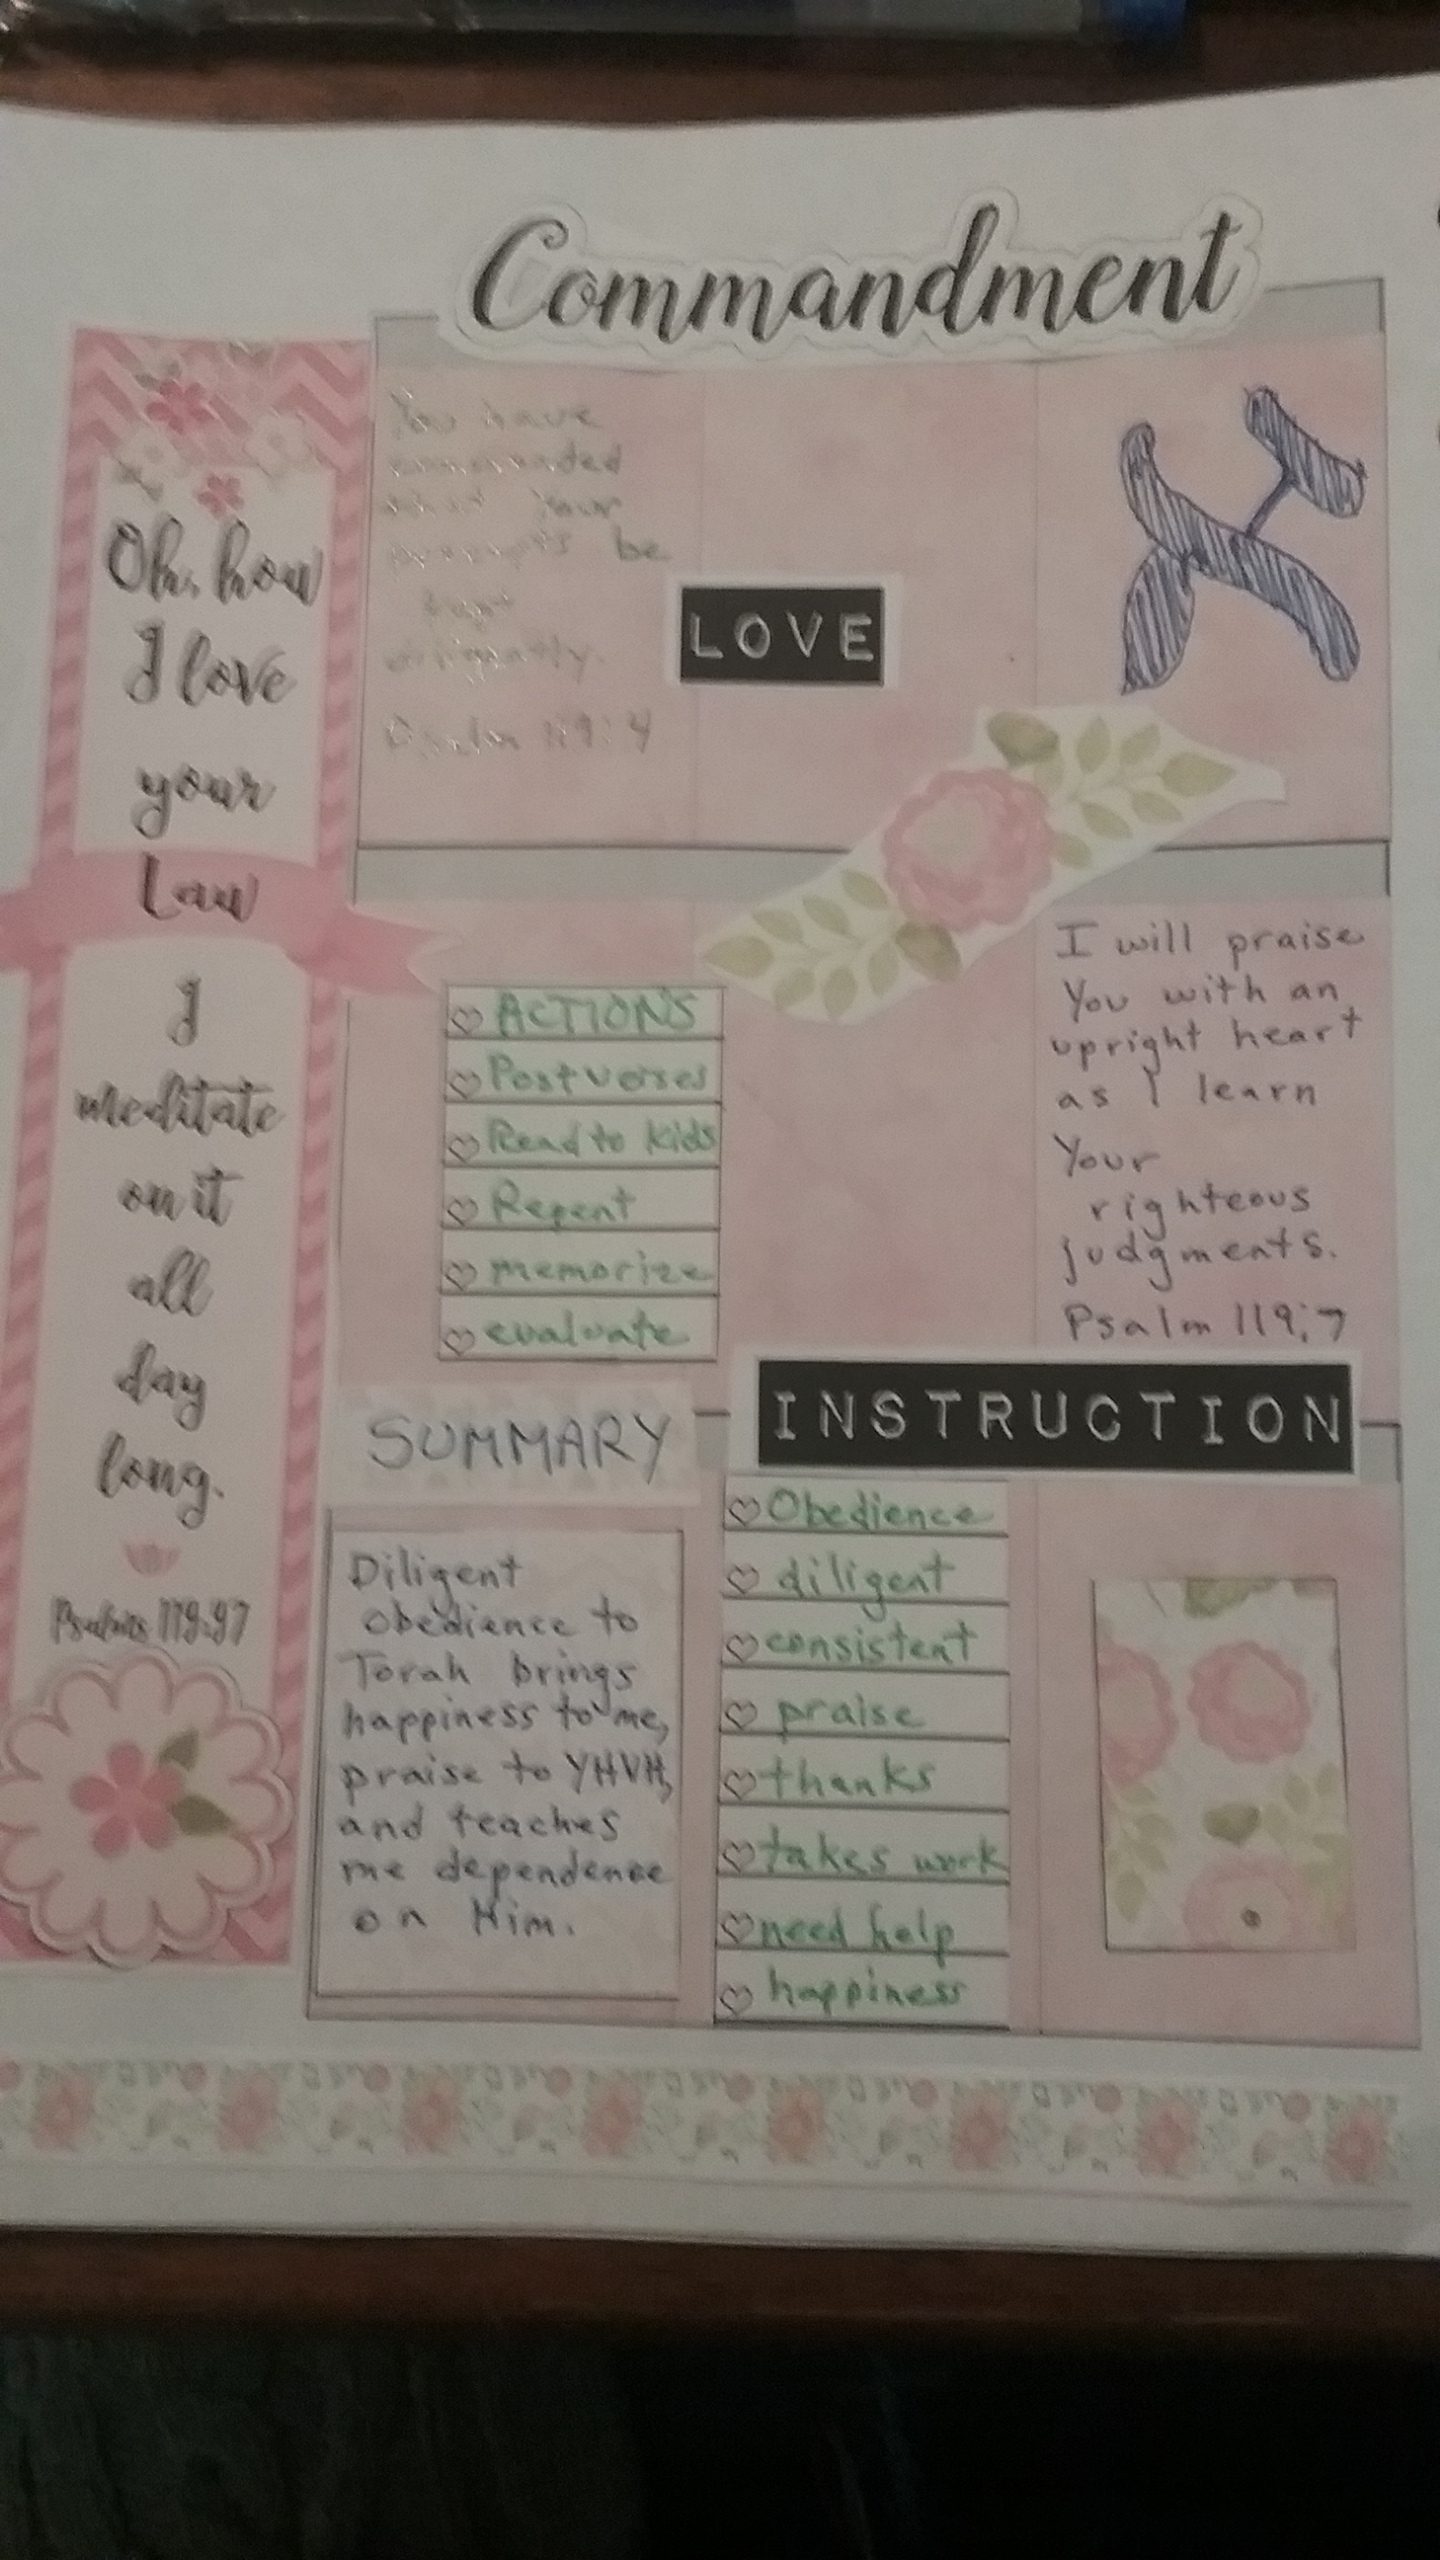 Commandment
Oh, how
I love
your
Law
I
meditate
on it
all
day
long.
Psalms 119:97
You have
commanded
that Your
precepts be
kept
diligently.
Psalm 119:4
LOVE
א
ACTIONS
Post verses
Read to kids
Repent
memorize
evaluate
I will praise
You with an
upright heart
as I learn
Your
righteous
judgments.
Psalm 119:7
SUMMARY
Diligent
obedience to
Torah brings
happiness to me,
praise to YHVH,
and teaches
me dependence
on Him.
INSTRUCTION
Obedience
diligent
consistent
praise
thanks
takes work
need help
happiness